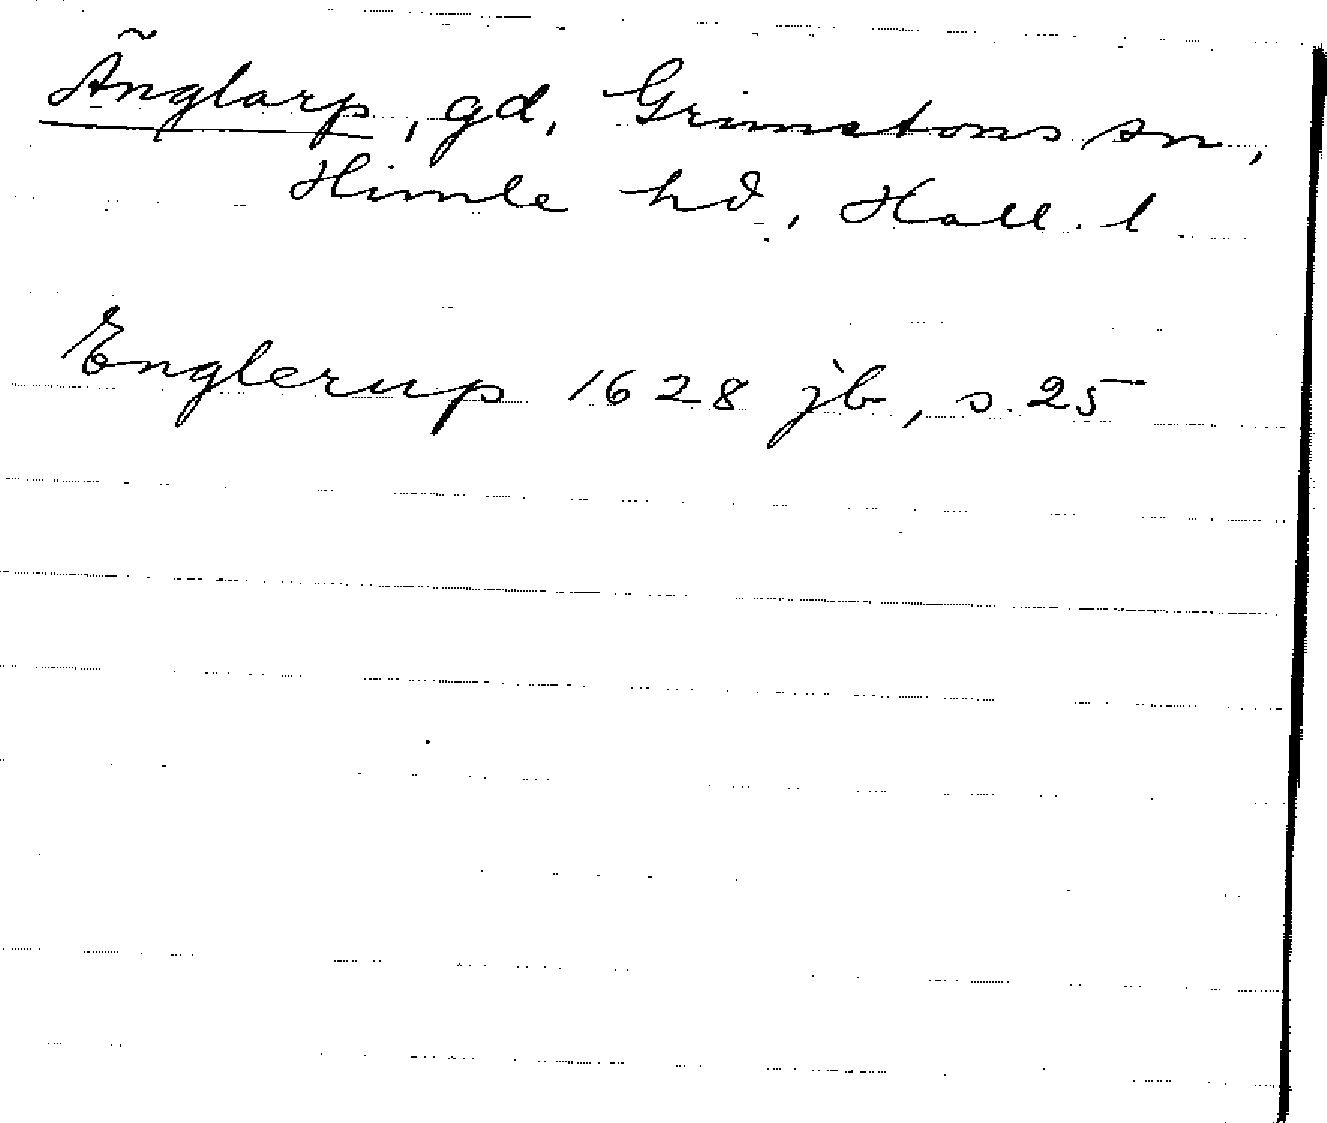 Änglarp, gd, Grimetons sn,
Himle hd, Hall. l
Englerup 1628 jb, s. 25